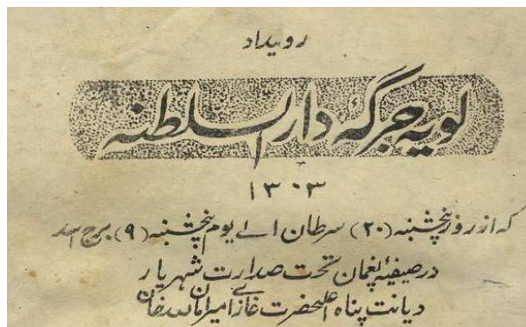 رویداد
لویه جرگهٔ دارالسلطنه
۱۳۰۳
که از روز پنجشنبه (۲۰) سرطان الے یوم پنجشنبه (۹) برج اسد
در صیفیهٔ پغمان تحت صدارت شهریار
دیانت پناه اعلیحضرت غازے امیر امان الله خان